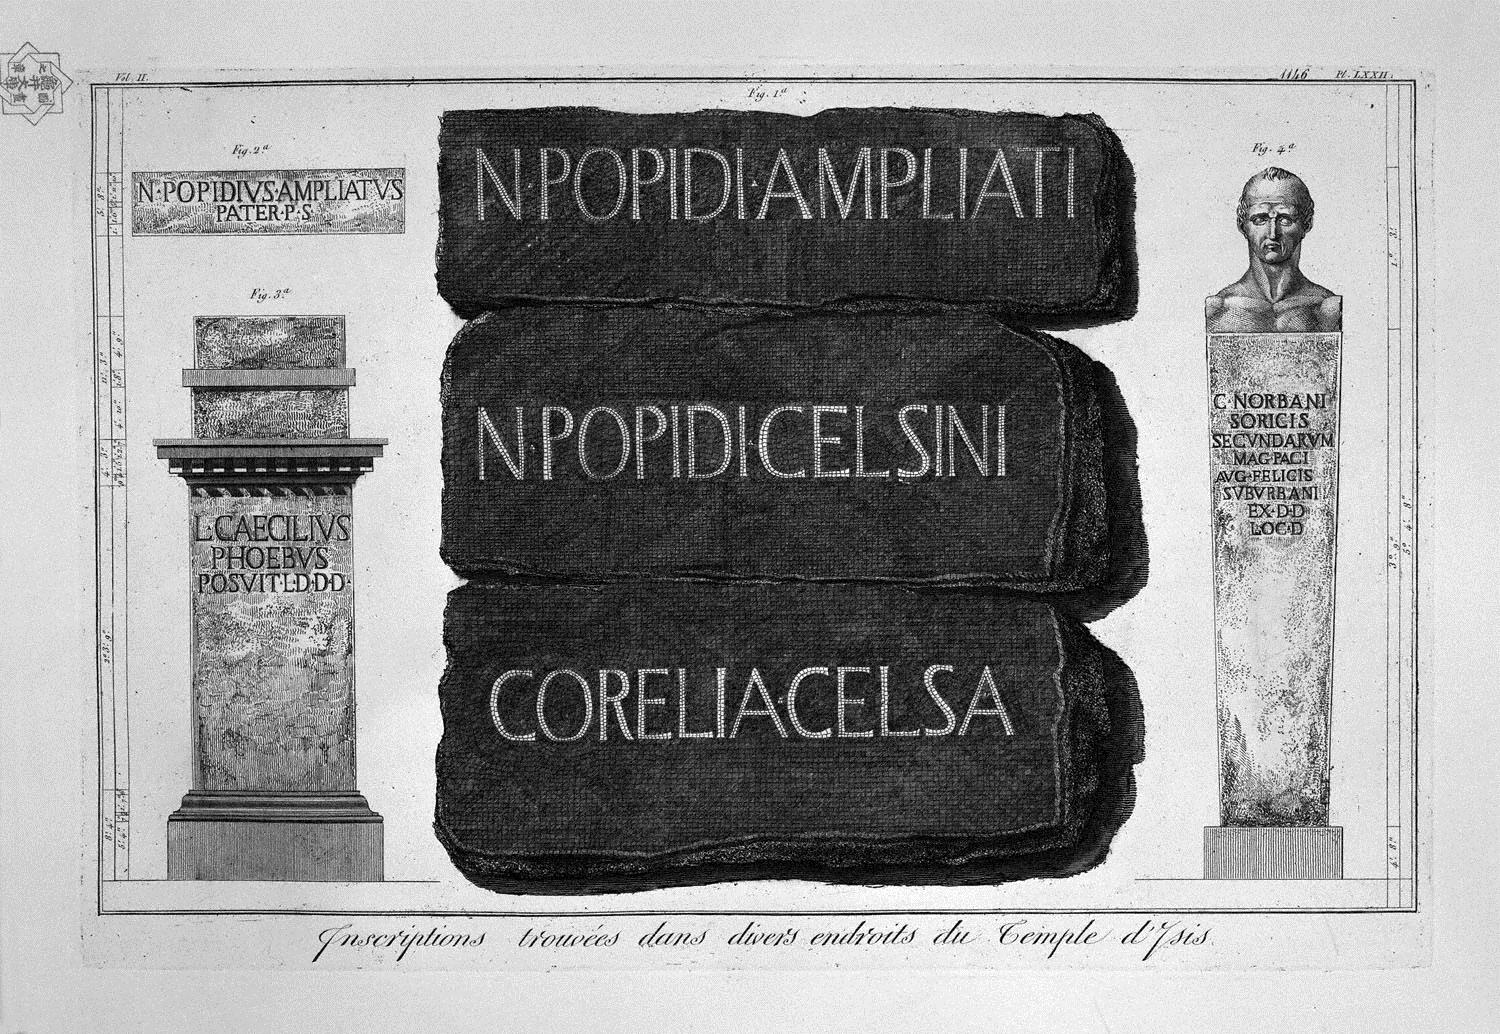 Vol. II.
1146
Pl. LXXII.
Fig. 1.ª
N·POPIDI·AMPLIATI
N·POPIDI·CELSINI
CORELIA·CELSA
Fig. 2.ª
N·POPIDIVS·AMPLIATVS
PATER·P·S
Fig. 3.ª
L·CAECILIVS
PHOEBVS
POSVIT·L·D·D·D·
Fig. 4.ª
C·NORBANI
SORICIS
SECVNDARVM
MAG·PAGI
AVG·FELICIS
SVBVRBANI
EX·D·D
LOC·D
Inscriptions trouvées dans divers endroits du Temple d'Isis.